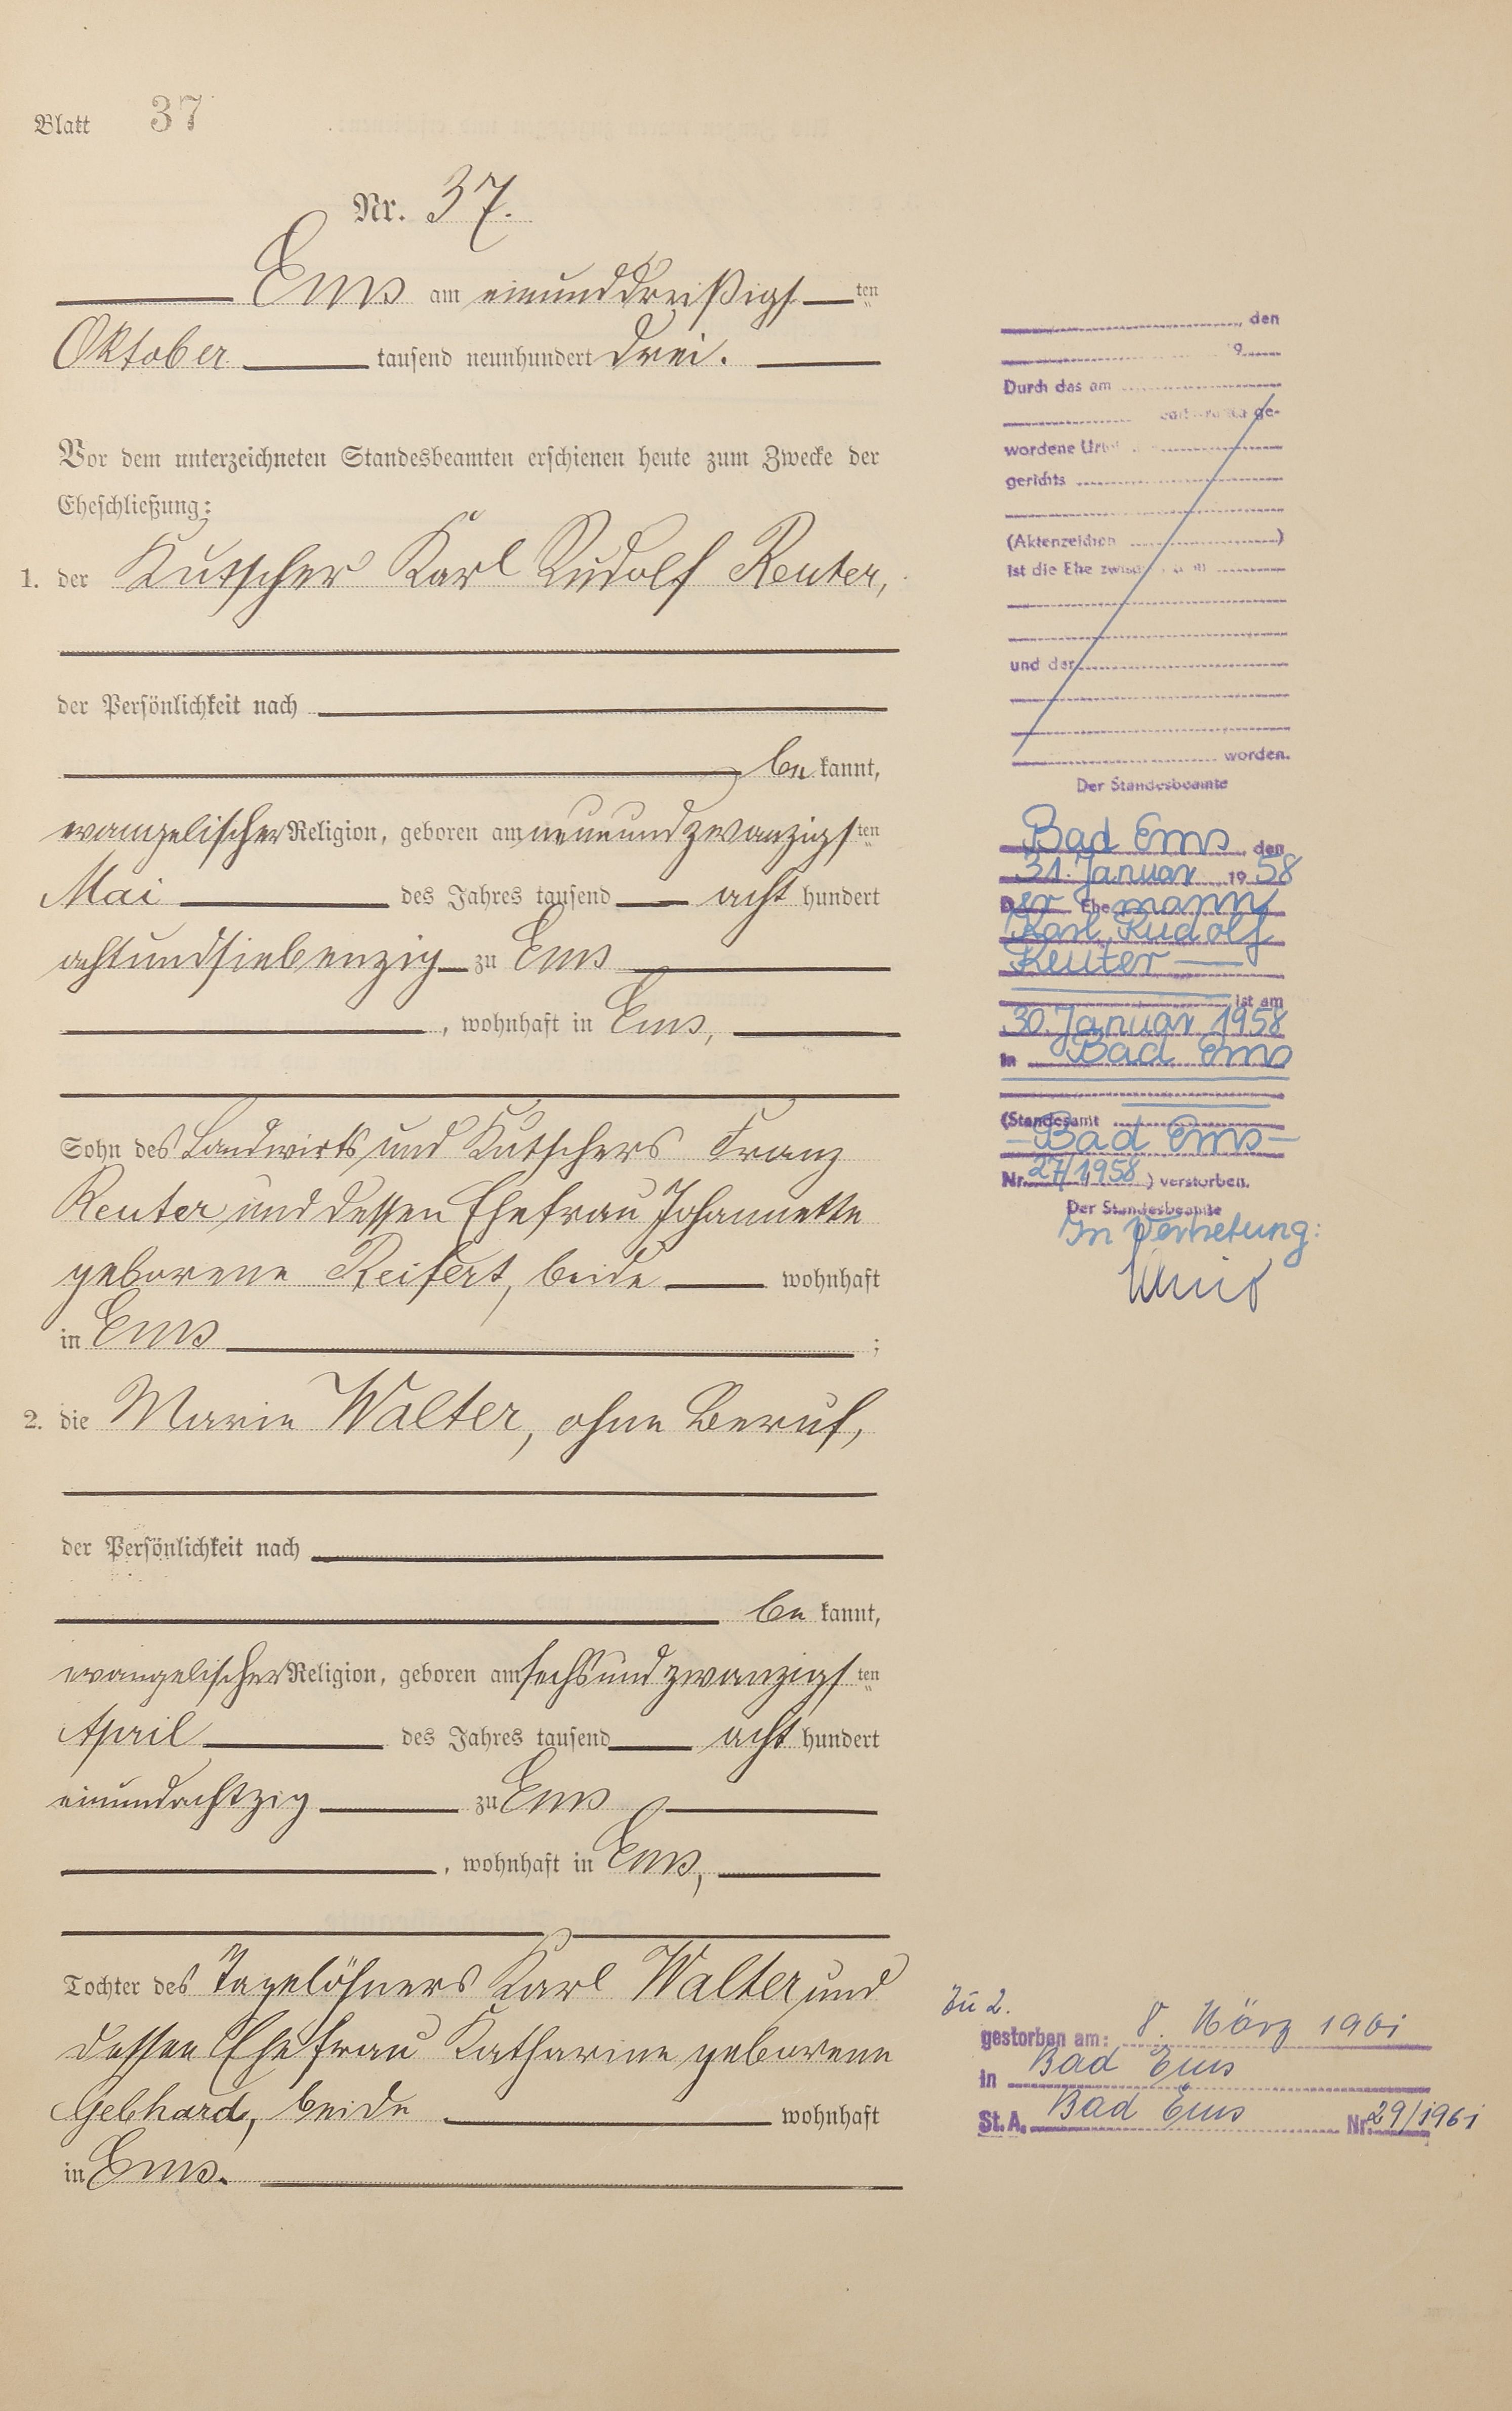 Blatt 37
Nr. 37.
Ems am einunddreißigsten
Oktober tausend neunhundert drei.
Vor dem unterzeichneten Standesbeamten erschienen heute zum Zwecke der
Eheschließung:
1. der Kutscher Karl Rudolf Reuter,
der Persönlichkeit nach
be kannt,
evangelischer Religion, geboren am neunundzwanzigsten
Mai des Jahres tausend acht hundert
achtundsiebenzig zu Ems
, wohnhaft in Ems,
Sohn des Landwirts und Kutschers Franz
Reuter und dessen Ehefrau Johannette
geborene Reifert, beide wohnhaft
in Ems ;
2. die Marie Walter, ohne Beruf,
der Persönlichkeit nach
be kannt,
evangelischer Religion, geboren am sechsundzwanzigsten
April des Jahres tausend acht hundert
einundachtzig zu Ems
, wohnhaft in Ems,
Tochter des Tagelöhners Karl Walter und
dessen Ehefrau Katharine geborene
Gebhard, beide wohnhaft
in Ems.
, den
19
Durch das am
ge-
wordene Urteil
gerichts
(Aktenzeichen )
ist die Ehe zwischen dem
und der
worden.
Der Standesbeamte
Bad Ems, den
31. Januar 1958
Der Ehemann
Karl Rudolf
Reuter
ist am
30. Januar 1958
in Bad Ems
(Standesamt
Bad Ems
Nr. 27/1958 ) verstorben.
Der Standesbeamte
In Vertretung:
Zu 2.
gestorben am: 8. März 1961
in Bad Ems
St. A. Bad Ems Nr. 29/1961